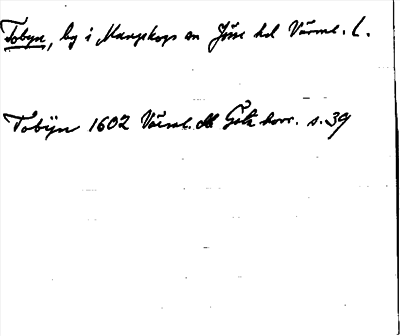 Tobyn, by i Mangskogs sn Jösse hd Värml. l.
Tobijn 1602 Värml. Götz korr. s. 39